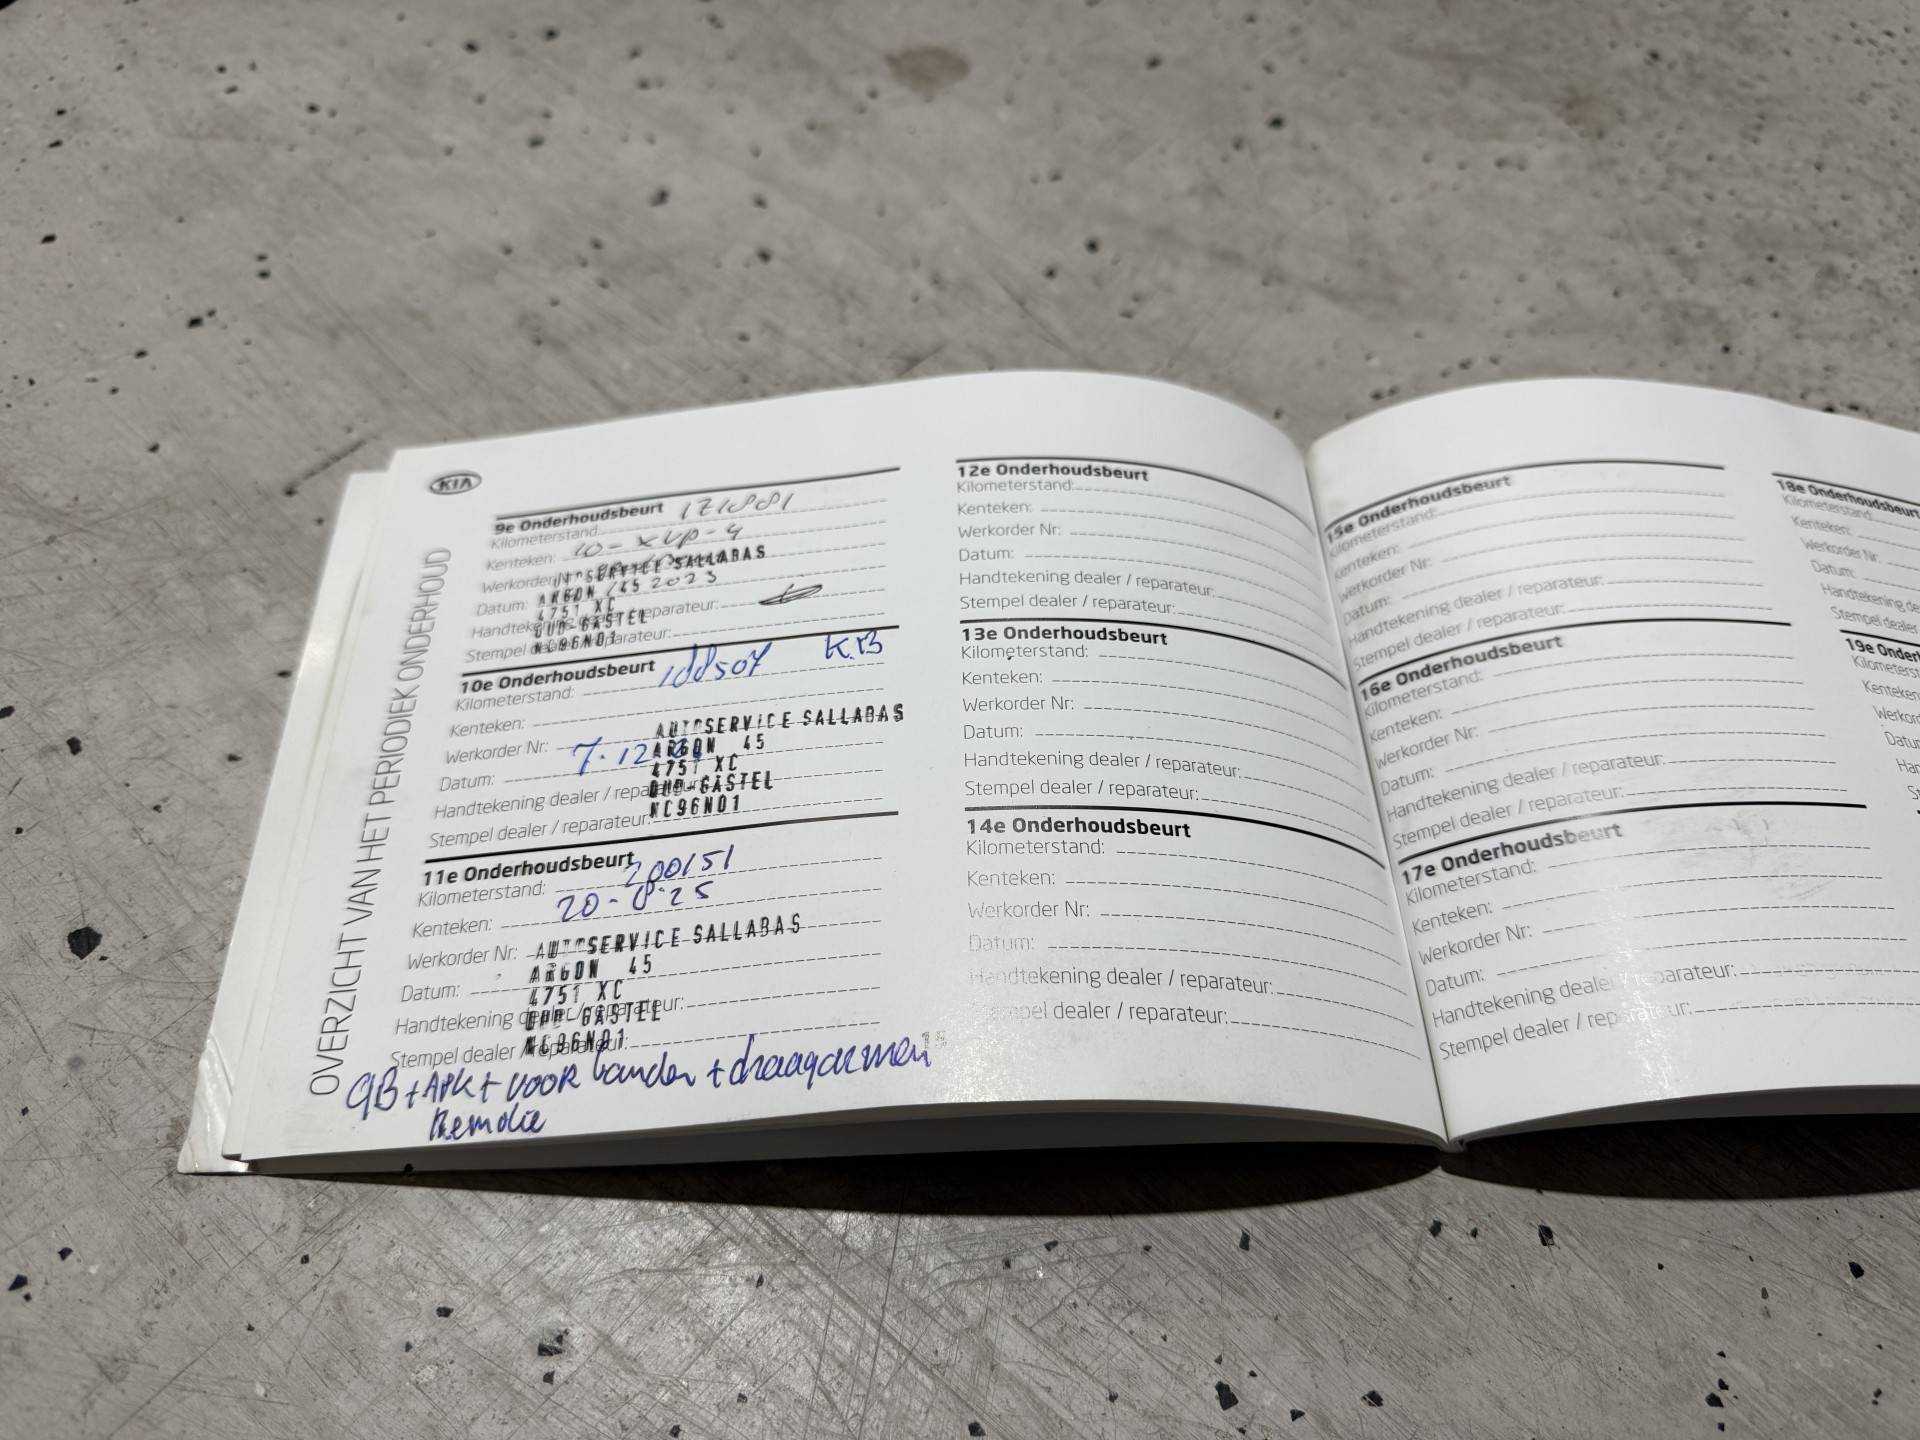 KIA
OVERZICHT VAN HET PERIODIEK ONDERHOUD
9e Onderhoudsbeurt
Kilometerstand: 171881
Kenteken: 10-XVP-4
Werkorder Nr:
AUTOSERVICE SALLABAS
Datum: 2023
ARGON 45
4751 XC
Handtekening dealer / reparateur:
OUD GASTEL
Stempel dealer / reparateur:
NC96NO1
10e Onderhoudsbeurt
Kilometerstand: 188507 KB
Kenteken:
Werkorder Nr:
AUTOSERVICE SALLABAS
Datum: 7-12
ARGON 45
4751 XC
Handtekening dealer / reparateur:
OUD-GASTEL
Stempel dealer / reparateur:
NC96NO1
11e Onderhoudsbeurt
Kilometerstand: 200151
Kenteken: 20-8-25
Werkorder Nr:
AUTOSERVICE SALLABAS
Datum:
ARGON 45
4751 XC
Handtekening dealer / reparateur:
OUD GASTEL
Stempel dealer / reparateur:
NC96NO1
GB + APK + voor banden + draagarmen
Remolie
12e Onderhoudsbeurt
Kilometerstand:
Kenteken:
Werkorder Nr:
Datum:
Handtekening dealer / reparateur:
Stempel dealer / reparateur:
13e Onderhoudsbeurt
Kilometerstand:
Kenteken:
Werkorder Nr:
Datum:
Handtekening dealer / reparateur:
Stempel dealer / reparateur:
14e Onderhoudsbeurt
Kilometerstand:
Kenteken:
Werkorder Nr:
Datum:
Handtekening dealer / reparateur:
Stempel dealer / reparateur:
15e Onderhoudsbeurt
Kilometerstand:
Kenteken:
Werkorder Nr:
Datum:
Handtekening dealer / reparateur:
Stempel dealer / reparateur:
16e Onderhoudsbeurt
Kilometerstand:
Kenteken:
Werkorder Nr:
Datum:
Handtekening dealer / reparateur:
Stempel dealer / reparateur:
17e Onderhoudsbeurt
Kilometerstand:
Kenteken:
Werkorder Nr:
Datum:
Handtekening dealer / reparateur:
Stempel dealer / reparateur:
18e Onderhoudsbeurt
Kilometerstand:
Kenteken:
Werkorder Nr:
Datum:
Handtekening de
Stempel dealer
19e Onder
Kilometerst
Kenteken
Werkord
Datu
Han
St